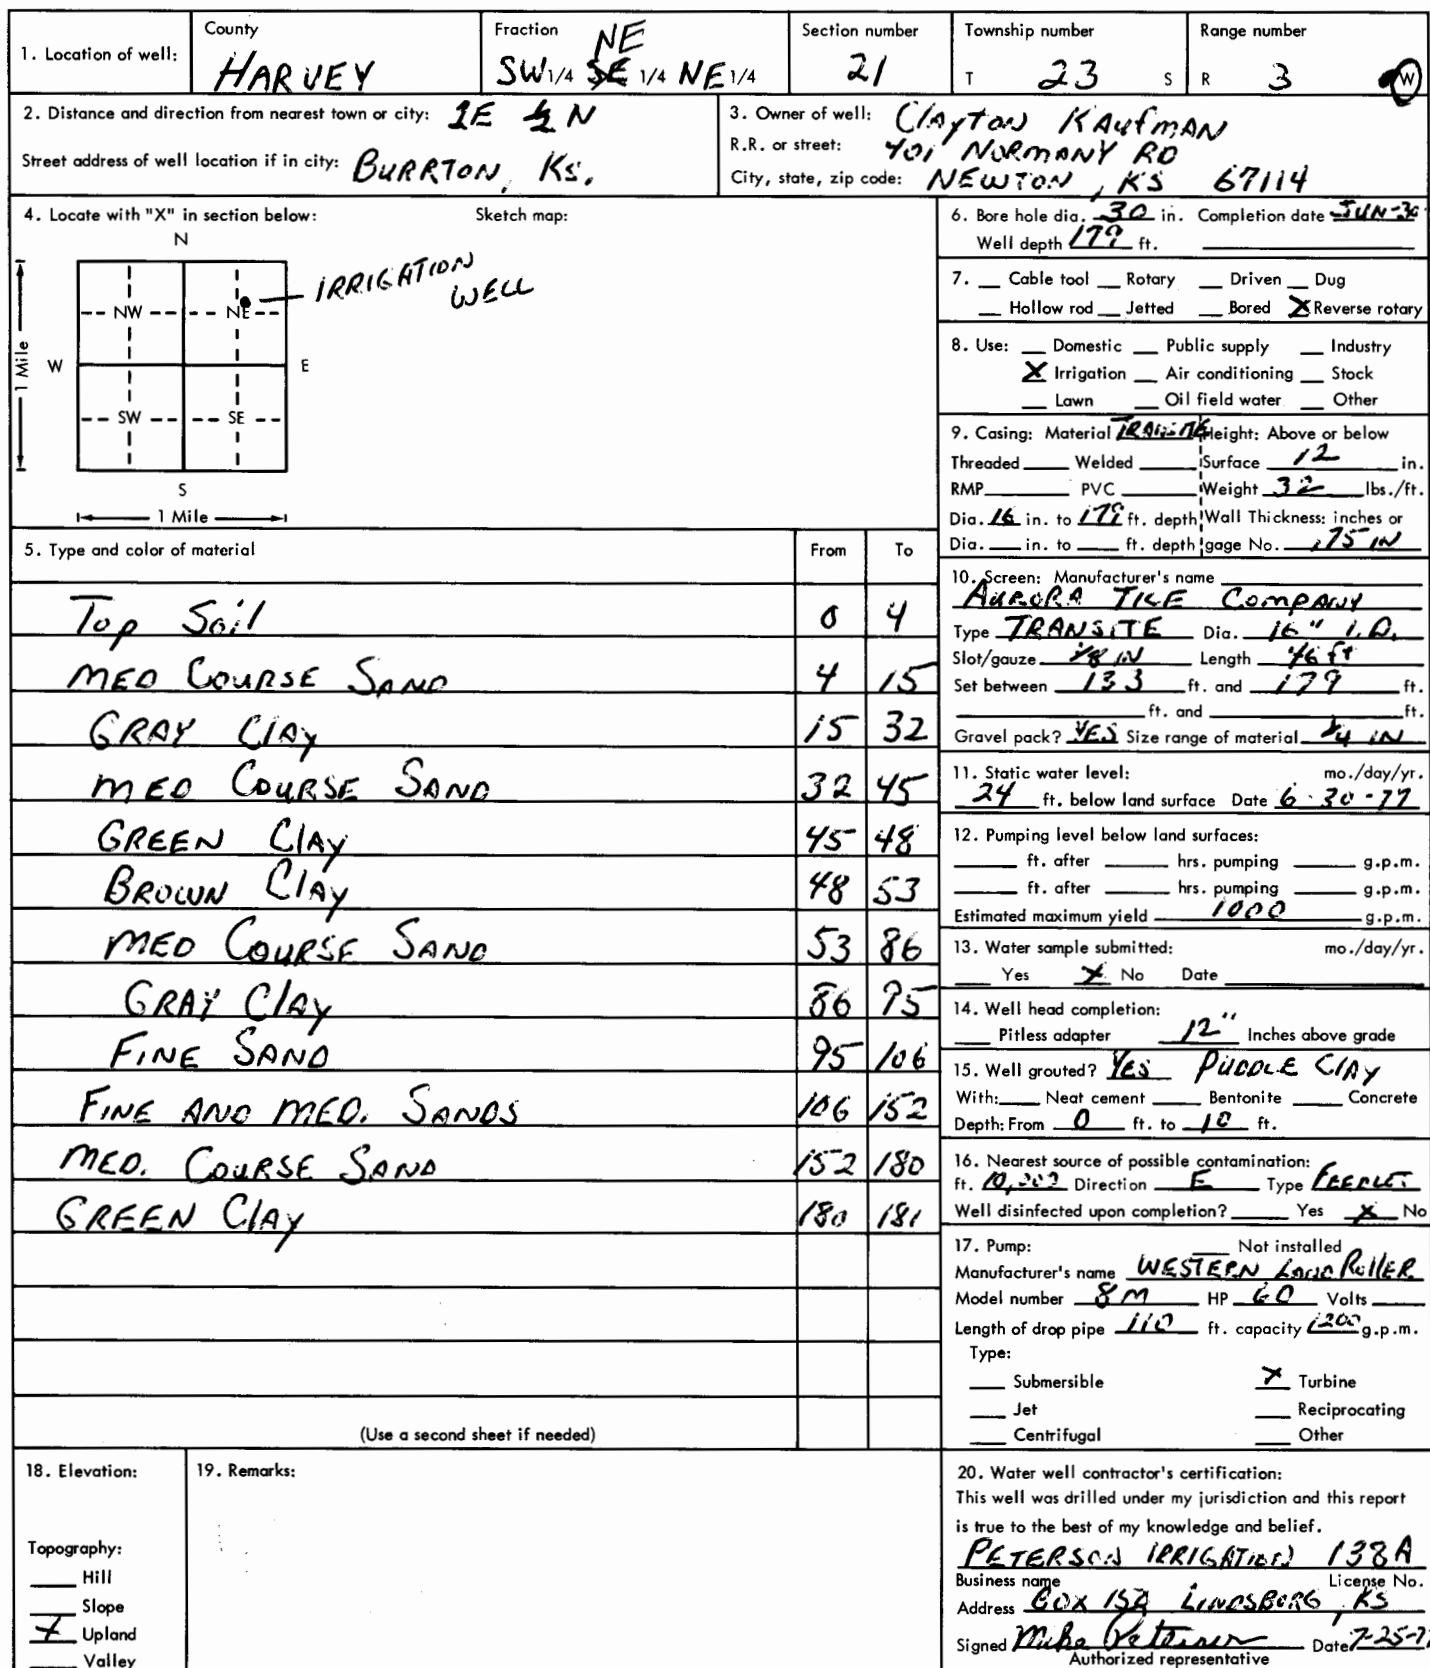 1. Location of well: County HARVEY Fraction NE SW 1/4 SE 1/4 NE 1/4 Section number 21 Township number T 23 S Range number R 3 W
2. Distance and direction from nearest town or city: 1E 1/2 N
Street address of well location if in city: BURRTON, KS.
3. Owner of well: Clayton Kaufman
R.R. or street: 401 NORMANY RD
City, state, zip code: NEWTON, KS 67114
4. Locate with "X" in section below: Sketch map:
N
NW NE
IRRIGATION WELL
W E
1 Mile
SW SE
S
1 Mile
5. Type and color of material From To
Top Soil 0 4
MED COURSE SAND 4 15
GRAY Clay 15 32
MED COURSE SAND 32 45
GREEN Clay 45 48
BROWN Clay 48 53
MED COURSE SAND 53 86
GRAY Clay 86 95
FINE SAND 95 106
FINE AND MED. SANDS 106 152
MED. COURSE SAND 152 180
GREEN Clay 180 181
(Use a second sheet if needed)
6. Bore hole dia. 30 in. Completion date JUN-30
Well depth 179 ft.
7. Cable tool Rotary Driven Dug
Hollow rod Jetted Bored X Reverse rotary
8. Use: Domestic Public supply Industry
X Irrigation Air conditioning Stock
Lawn Oil field water Other
9. Casing: Material TRANSITE Height: Above or below
Threaded Welded Surface 12 in.
RMP PVC Weight 32 lbs./ft.
Dia. 16 in. to 179 ft. depth Wall Thickness: inches or
Dia. in. to ft. depth gage No. .75 IN
10. Screen: Manufacturer's name
AURORA TILE COMPANY
Type TRANSITE Dia. 16" I.D.
Slot/gauze 1/8 IN Length 46 ft
Set between 133 ft. and 179 ft.
ft. and ft.
Gravel pack? YES Size range of material 1/4 IN
11. Static water level: mo./day/yr.
24 ft. below land surface Date 6-30-77
12. Pumping level below land surfaces:
ft. after hrs. pumping g.p.m.
ft. after hrs. pumping g.p.m.
Estimated maximum yield 1000 g.p.m.
13. Water sample submitted: mo./day/yr.
Yes X No Date
14. Well head completion:
Pitless adapter 12" Inches above grade
15. Well grouted? YES PUDDLE CLAY
With: Neat cement Bentonite Concrete
Depth: From 0 ft. to 10 ft.
16. Nearest source of possible contamination:
ft. 10,000 Direction E Type FEEDLOT
Well disinfected upon completion? Yes X No
17. Pump: Not installed
Manufacturer's name WESTERN LAND ROLLER
Model number 8M HP 60 Volts
Length of drop pipe 110 ft. capacity 1200 g.p.m.
Type:
Submersible X Turbine
Jet Reciprocating
Centrifugal Other
18. Elevation:
Topography:
Hill
Slope
X Upland
Valley
19. Remarks:
20. Water well contractor's certification:
This well was drilled under my jurisdiction and this report
is true to the best of my knowledge and belief.
PETERSON IRRIGATION 138A
Business name License No.
Address BOX 152 LINDSBORG, KS
Signed Mike Peterson Date 7-25-77
Authorized representative